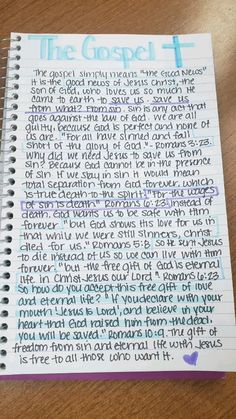 The Gospel
The gospel simply means "the Good News"
It is the good news of Jesus Christ, the
son of God, who loves us so much He
came to earth to save us. save us
from what? From sin. Sin is any act that
goes against the law of God. we are all
guilty, because God is perfect and none of
us are. "For all have sinned and fall
short of the glory of God" - Romans 3:23.
why did we need Jesus to save us from
sin? Because God cannot be in the presence
of sin. If we stay in sin it would mean
total separation from God forever, which
is true death to the spirit. "For the wages
of sin is death" Romans 6:23. Instead of
death, God wants us to be safe with Him
forever. "but God shows his love for us in
that while we were still sinners, christ
died for us." Romans 5:8. So He sent Jesus
to die instead of us so we can live with Him
forever. "but the free gift of God is eternal
life in Christ Jesus our Lord." Romans 6:23
So how do you accept this free gift of love
and eternal life? "If you declare with your
mouth 'Jesus is Lord', and believe in your
heart that God raised him from the dead,
you will be saved." Romans 10:9. The gift of
freedom from sin and eternal life with Jesus
is free to all those who want it.